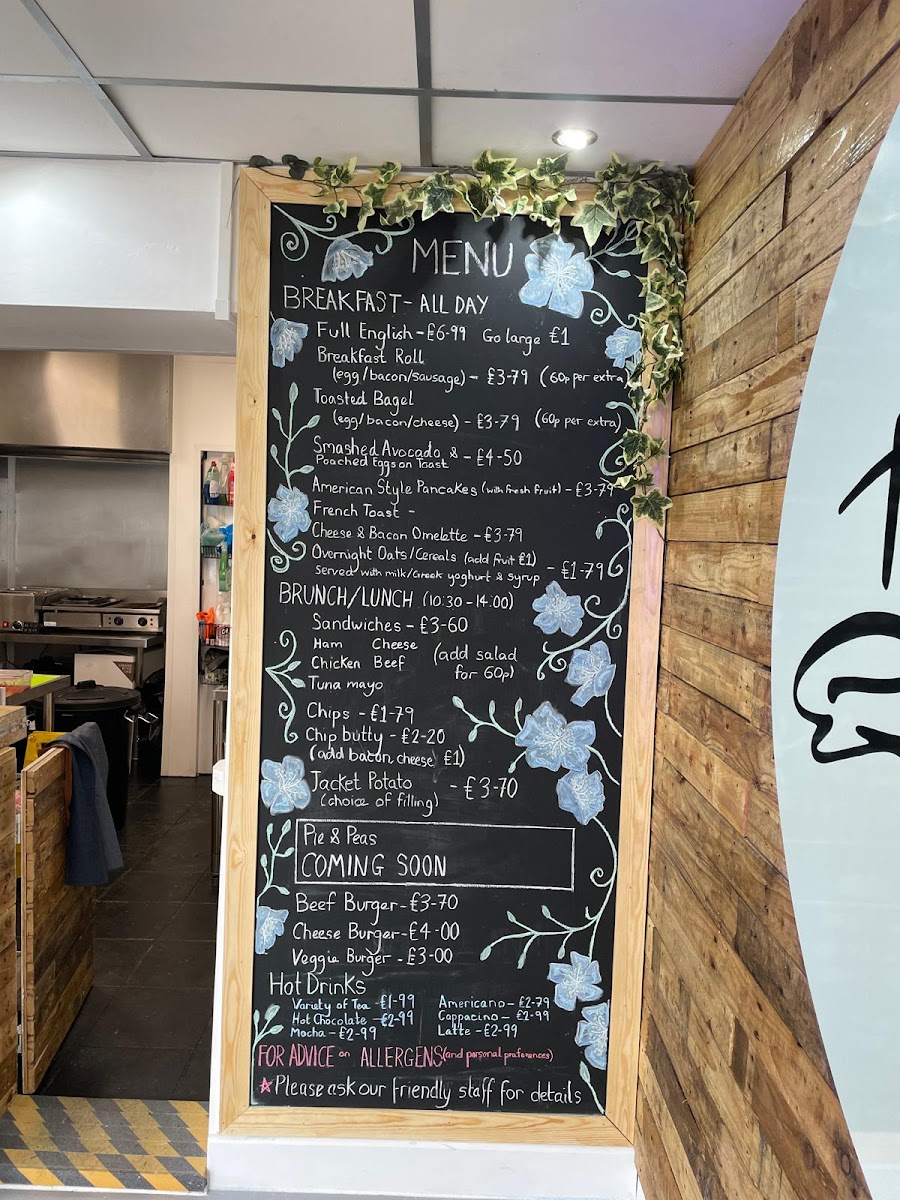 MENU
BREAKFAST - ALL DAY
Full English - £6-99 Go large £1
Breakfast Roll
(egg/bacon/sausage) - £3-79 (60p per extra)
Toasted Bagel
(egg/bacon/cheese) - £3-79 (60p per extra)
Smashed Avocado & - £4-50
Poached Eggs on Toast
American Style Pancakes (with fresh fruit) - £3-79
French Toast -
Cheese & Bacon Omelette - £3-79
Overnight Oats/Cereals (add fruit £1)
Served with milk/Greek yoghurt & syrup - £1-79
BRUNCH/LUNCH (10:30 - 14:00)
Sandwiches - £3-60
Ham Cheese
Chicken Beef (add salad
Tuna mayo for 60p)
Chips - £1-79
Chip butty - £2-20
(add bacon, cheese £1)
Jacket Potato - £3-70
(choice of filling)
Pie & Peas
COMING SOON
Beef Burger - £3-70
Cheese Burger - £4-00
Veggie Burger - £3-00
Hot Drinks
Variety of Tea - £1-99 Americano - £2-79
Hot Chocolate - £2-99 Cappacino - £2-99
Mocha - £2-99 Latte - £2-99
FOR ADVICE on ALLERGENS (and personal preferences)
☆ Please ask our friendly staff for details